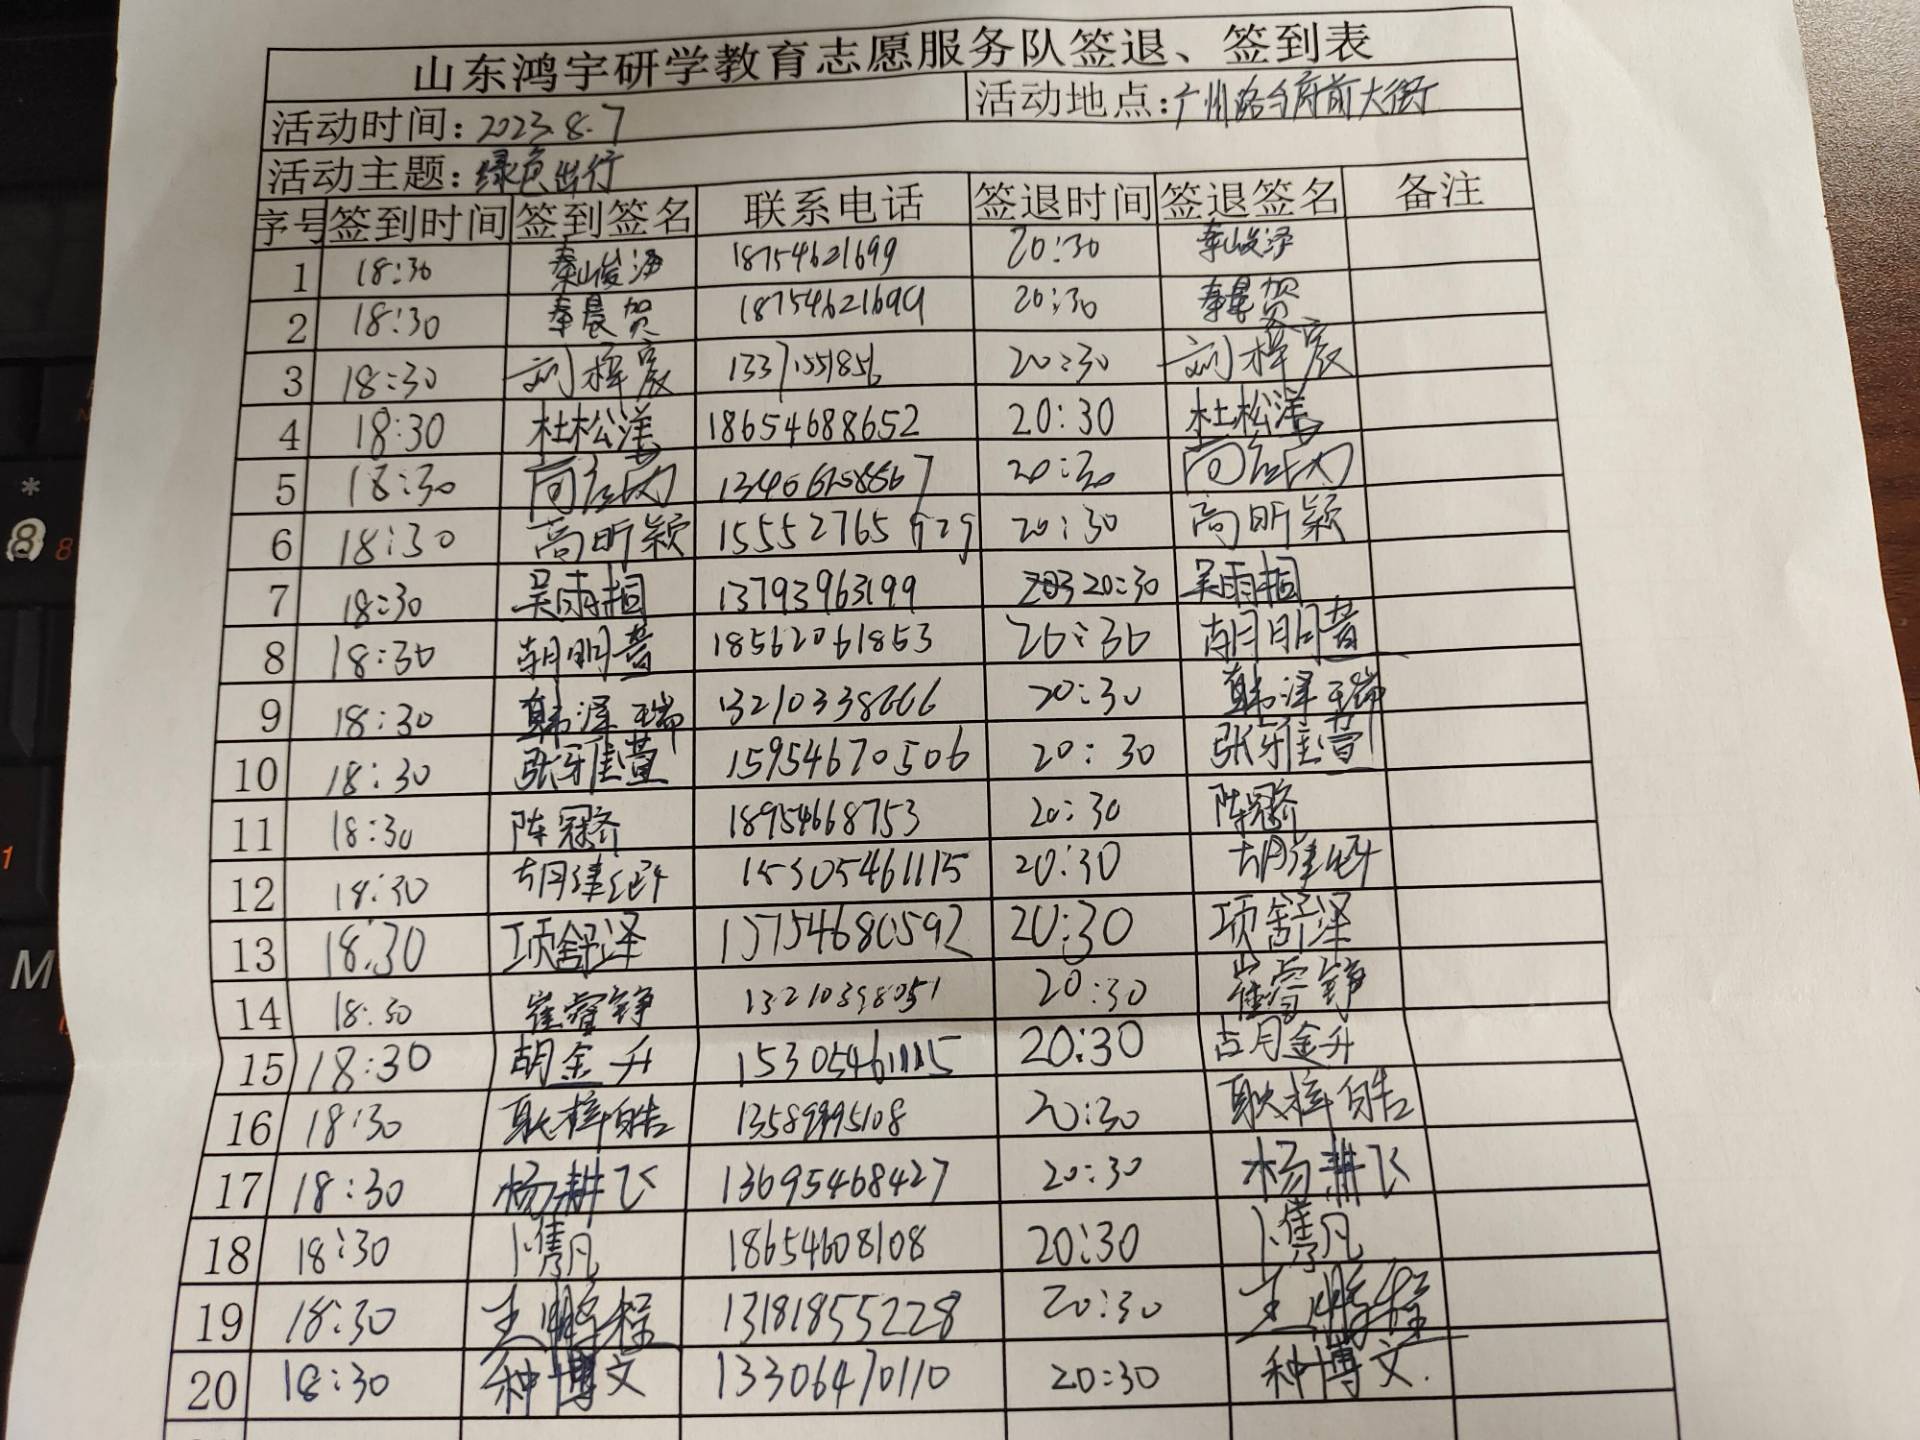 山东鸿宇研学教育志愿服务队签退、签到表
活动时间:2023.8.7 活动地点:广州路与府前大街
活动主题:绿色出行
序号 签到时间 签到签名 联系电话 签退时间 签退签名 备注
1 18:30 秦峻泽 18754621699 20:30 秦峻泽
2 18:30 秦晨贺 18754621699 20:30 秦晨贺
3 18:30 刘梓宸 13371551856 20:30 刘梓宸
4 18:30 杜松洋 18654688652 20:30 杜松洋
5 18:30 20:30
6 18:30 高昕颖 15552765929 20:30 高昕颖
7 18:30 吴雨桐 13793963199 20:30 吴雨桐
8 18:30 胡明普 18562061853 20:30 胡明普
9 18:30 韩泽瑞 13210338666 20:30 韩泽瑞
10 18:30 张雅萱 15954670506 20:30 张雅萱
11 18:30 陈冠齐 18954668753 20:30 陈冠齐
12 18:30 15305461115 20:30
13 18:30 项舒泽 15754680592 20:30 项舒泽
14 18:30 崔睿铮 13210398051 20:30 崔睿铮
15 18:30 胡金升 15305461115 20:30 胡金升
16 18:30 耿梓皓 13589995108 20:30 耿梓皓
17 18:30 杨耕飞 13695468427 20:30 杨耕飞
18 18:30 卜隽凡 18654608108 20:30 卜隽凡
19 18:30 13181855228 20:30
20 18:30 种博文 13306470110 20:30 种博文.
M
8
8
1
*